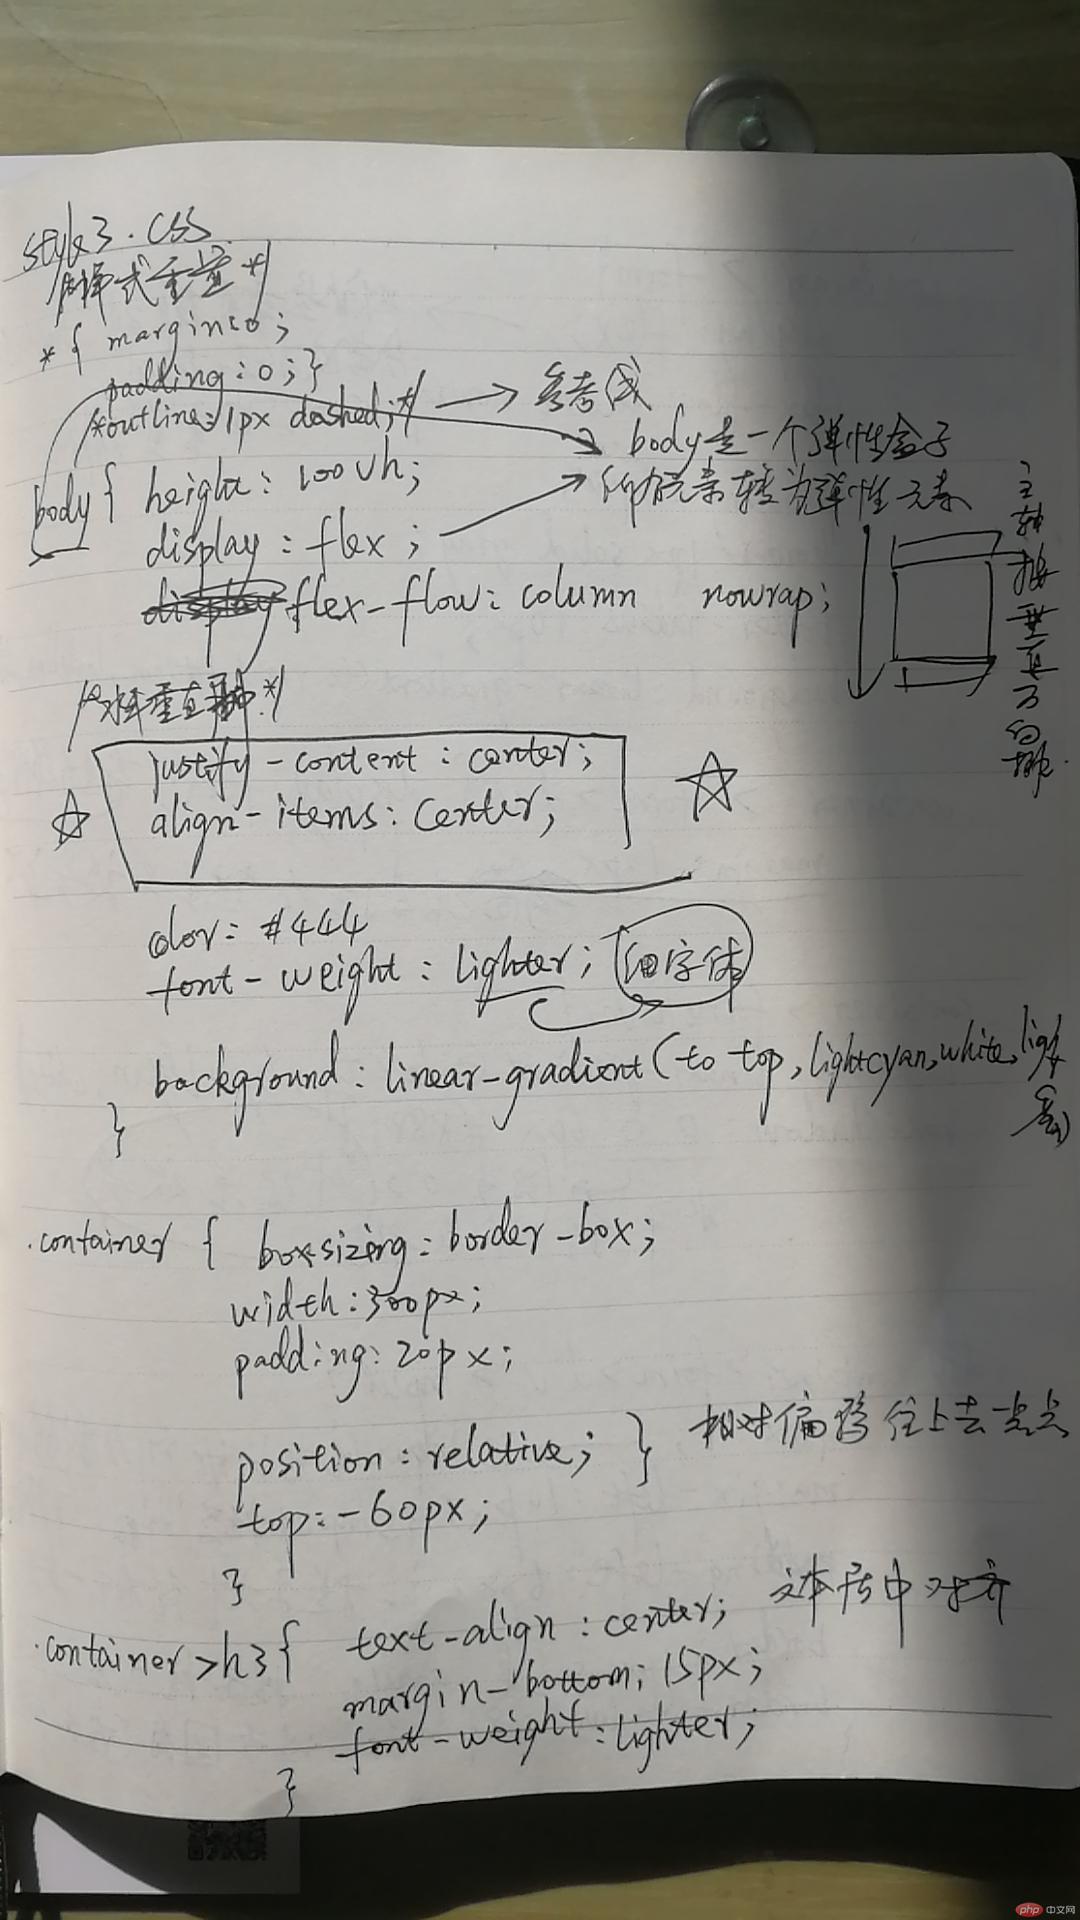 style3.css
/*样式重置*/
*{ margin:0;
padding:0;}
/*outline:1px dashed;*/ → 参考线
body是一个弹性盒子
body{ height: 100vh;
内部元素转为弹性元素
display: flex;
flex-flow: column nowrap;
主轴按垂直方向排.
/*水平垂直
justify-content: center;
align-items: center;
color: #444
font-weight: lighter; 细字体
background: linear-gradient(to top, lightcyan, white, light
}
.container { box-sizing: border-box;
width: 300px;
padding: 20px;
position: relative; } 相对偏移往上去一点点
top: -60px;
}
.container>h3{ text-align: center; 文本居中对齐
margin-bottom: 15px;
font-weight: lighter;
}
php 中文网